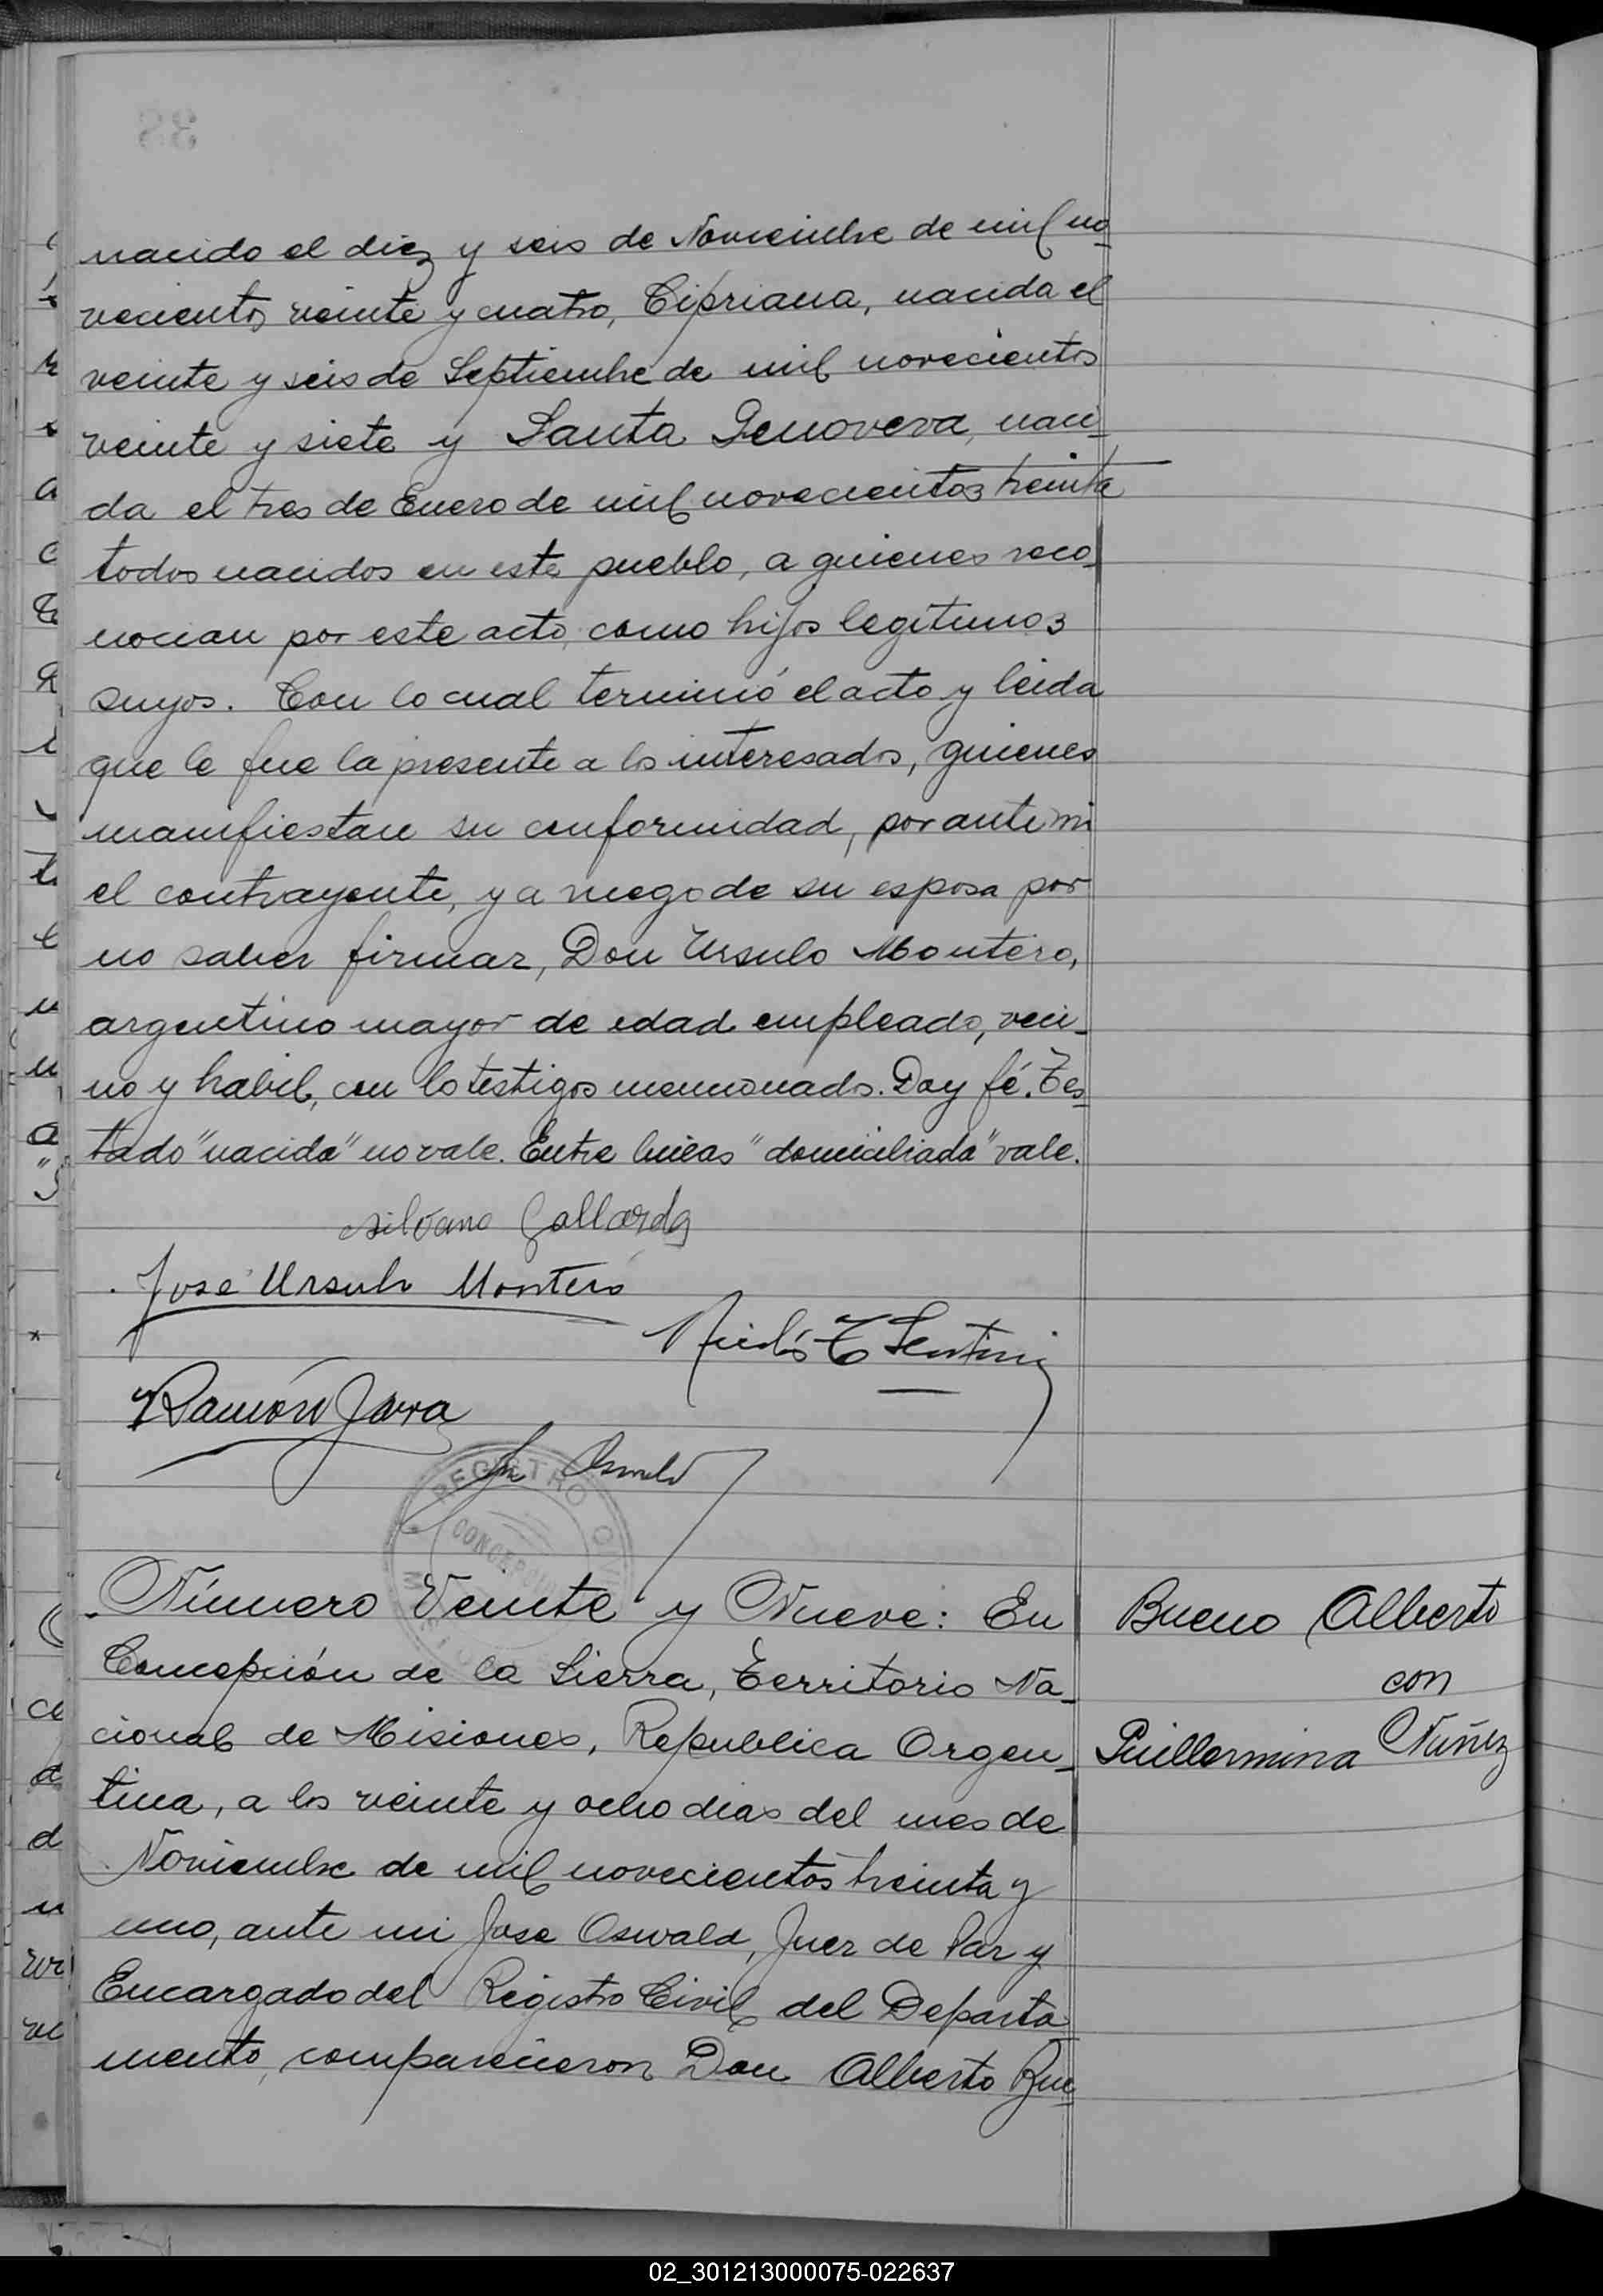 nacido el diez y seis de Noviembre de mil no-
vecientos veinte y cuatro, Cipriana, nacida el
veinte y seis de Septiembre de mil novecientos
veinte y siete y Santa Genoveva, naci-
da el tres de Enero de mil novecientos treinta
todos nacidos en este pueblo, a quienes reco-
nocian por este acto, como hijos legitimos
suyos. Con lo cual terminó el acto y leida
que le fue la presente a los interesados, quienes
manifiestan su conformidad, por ante mi
el contrayente, y a ruego de su esposa por
no saber firmar, Don Ursulo Montero,
argentino mayor de edad empleado, veci-
no y habil, con los testigos mencionados. Doy fé. Tes-
tado "nacida" no vale. Entre lineas "domiciliada" vale.
Silvano Gallardo
José Ursulo Montero
Ramón Jara
REGISTRO CIVIL
CONCEPCION
Número Veinte y Nueve: En
Concepción de la Sierra, Territorio Na-
cional de Misiones, Republica Argen-
tina, a los veinte y ocho dias del mes de
Noviembre de mil novecientos treinta y
uno, ante mi Jose Oswald, Juez de Paz y
Encargado del Registro Civil del Departa-
mento, comparecieron Don Alberto Bue-
Bueno Alberto
con
Guillermina Nuñez
38
02_301213000075-022637